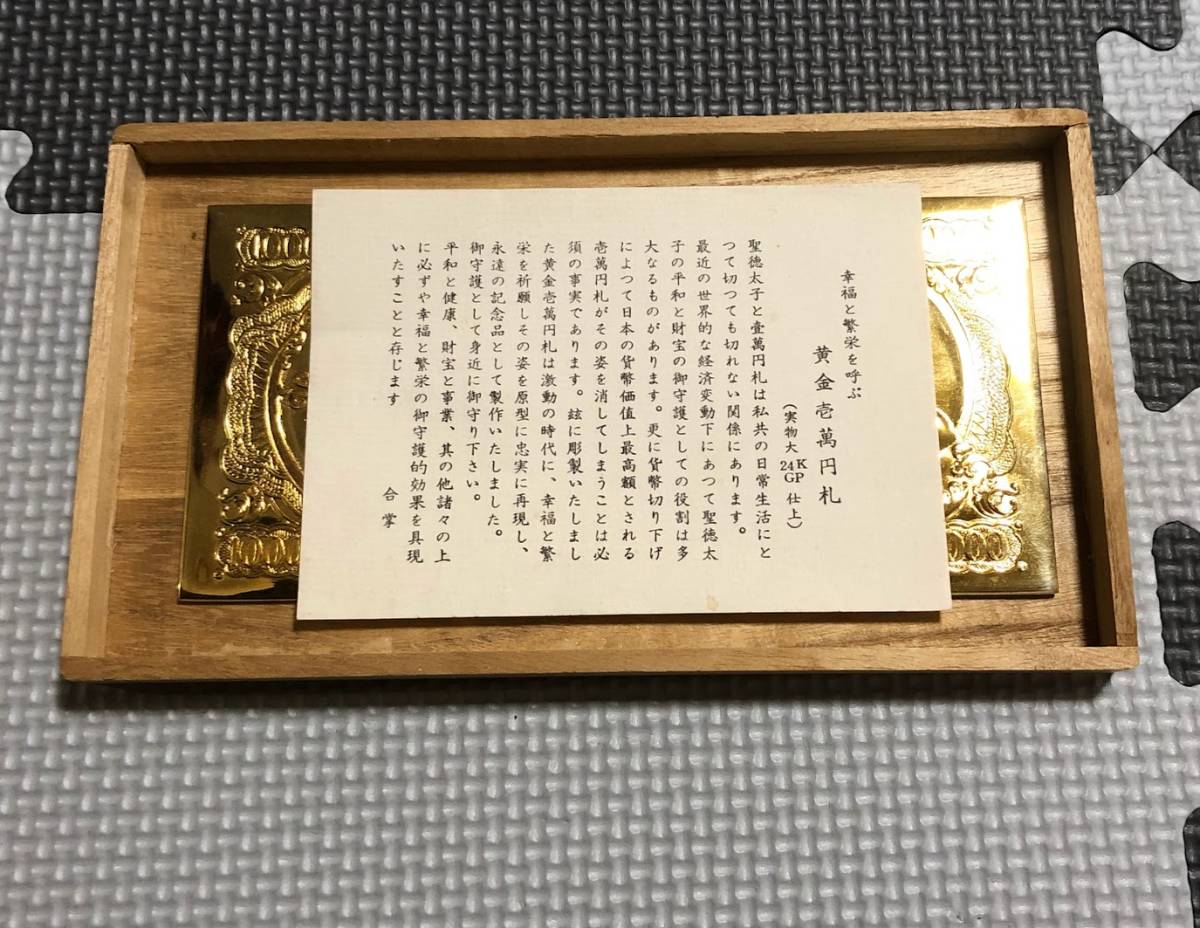 幸福と繁栄を呼ぶ
黄金壱萬円札
（実物大 24KGP 仕上）
聖徳太子と壹萬円札は私共の日常生活にと
つて切つても切れない関係にあります。
最近の世界的な経済変動下にあつて聖徳太
子の平和と財宝の御守護としての役割は多
大なるものがあります。更に貨幣切り下げ
によつて日本の貨幣価値上最高額とされる
壱萬円札がその姿を消してしまうことは必
須の事実であります。玆に彫製いたしまし
た黄金壱萬円札は激動の時代に、幸福と繁
栄を祈願しその姿を原型に忠実に再現し、
永遠の記念品として製作いたしました。
御守護として身近に御守り下さい。
平和と健康、財宝と事業、其の他諸々の上
に必ずや幸福と繁栄の御守護的効果を具現
いたすことと存じます
合掌
1000
0000